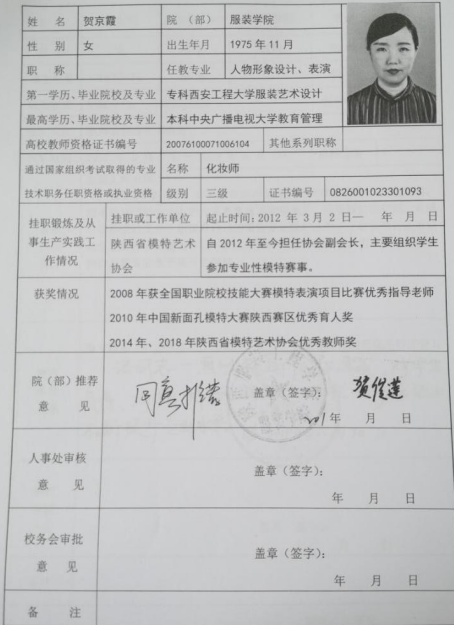 姓 名 贺京霞 院（部） 服装学院
性 别 女 出生年月 1975年11月
职 称 任教专业 人物形象设计、表演
第一学历、毕业院校及专业 专科西安工程大学服装艺术设计
最高学历、毕业院校及专业 本科中央广播电视大学教育管理
高校教师资格证书编号 20076100071006104 其他系列职称
通过国家组织考试取得的专业技术职务任职资格或执业资格 名称 化妆师
级别 三级 证书编号 0826001023301093
挂职锻炼及从事生产实践工作情况 挂职或工作单位 起止时间：2012 年 3 月 2 日— 年 月 日
陕西省模特艺术协会 自2012年至今担任协会副会长，主要组织学生
参加专业性模特赛事。
获奖情况 2008年获全国职业院校技能大赛模特表演项目比赛优秀指导老师
2010年中国新面孔模特大赛陕西赛区优秀育人奖
2014年、2018年陕西省模特艺术协会优秀教师奖
院（部）推荐
意 见 同意推荐 盖章（签字）：
年 月 日
人事处审核
意 见 盖章（签字）：
年 月 日
校务会审批
意 见 盖章（签字）：
年 月 日
备 注